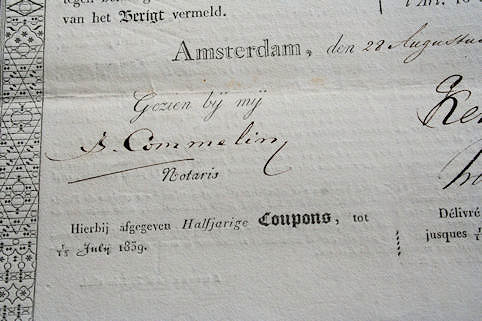 van het Berigt vermeld.
Amsterdam, den 28 Augustus
Gezien bij mij
Commelin
Notaris
Hierbij afgegeven Halfjarige Coupons, tot
1/15 July 1839.
Délivré
jusques